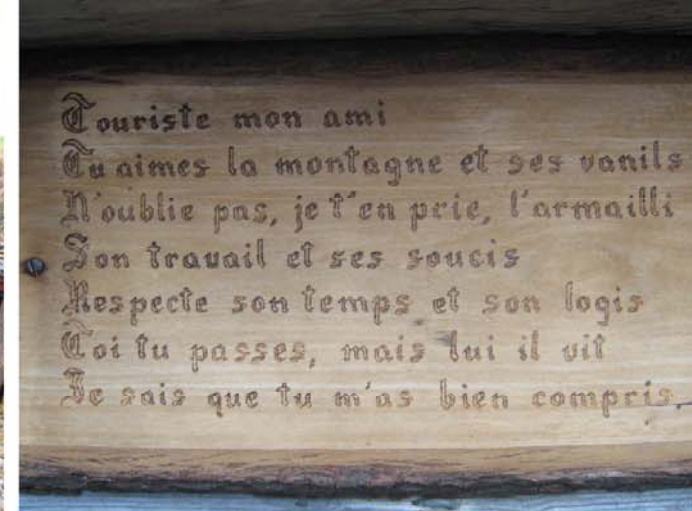 Touriste mon ami
Tu aimes la montagne et ses vanils
N'oublie pas, je t'en prie, l'armailli
Son travail et ses soucis
Respecte son temps et son logis
Toi tu passes, mais lui il vit
Je sais que tu m'as bien compris